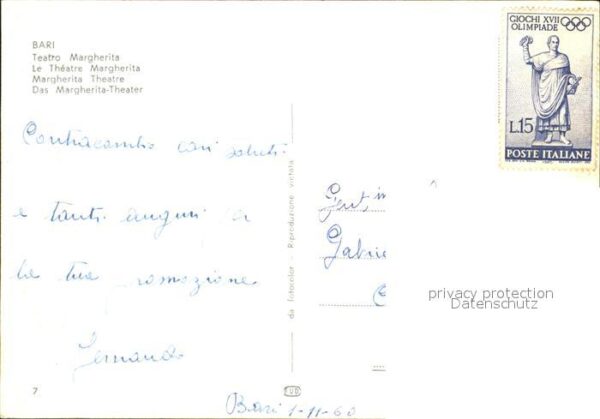 BARI
Teatro Margherita
Le Théatre Margherita
Margherita Theatre
Das Margherita-Theater
Contracambio cari saluti
e tanti auguri per
la tua promozione
Fernando
7
Bari 1-11-60
da fotocolor - Riproduzione vietata
GIOCHI XVII
OLIMPIADE
L.15
POSTE ITALIANE
Gent.
Gabrie
privacy protection
Datenschutz